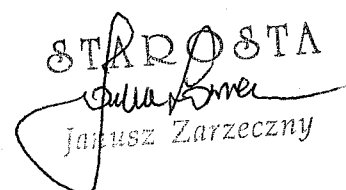 STAROSTA
Janusz Zarzeczny